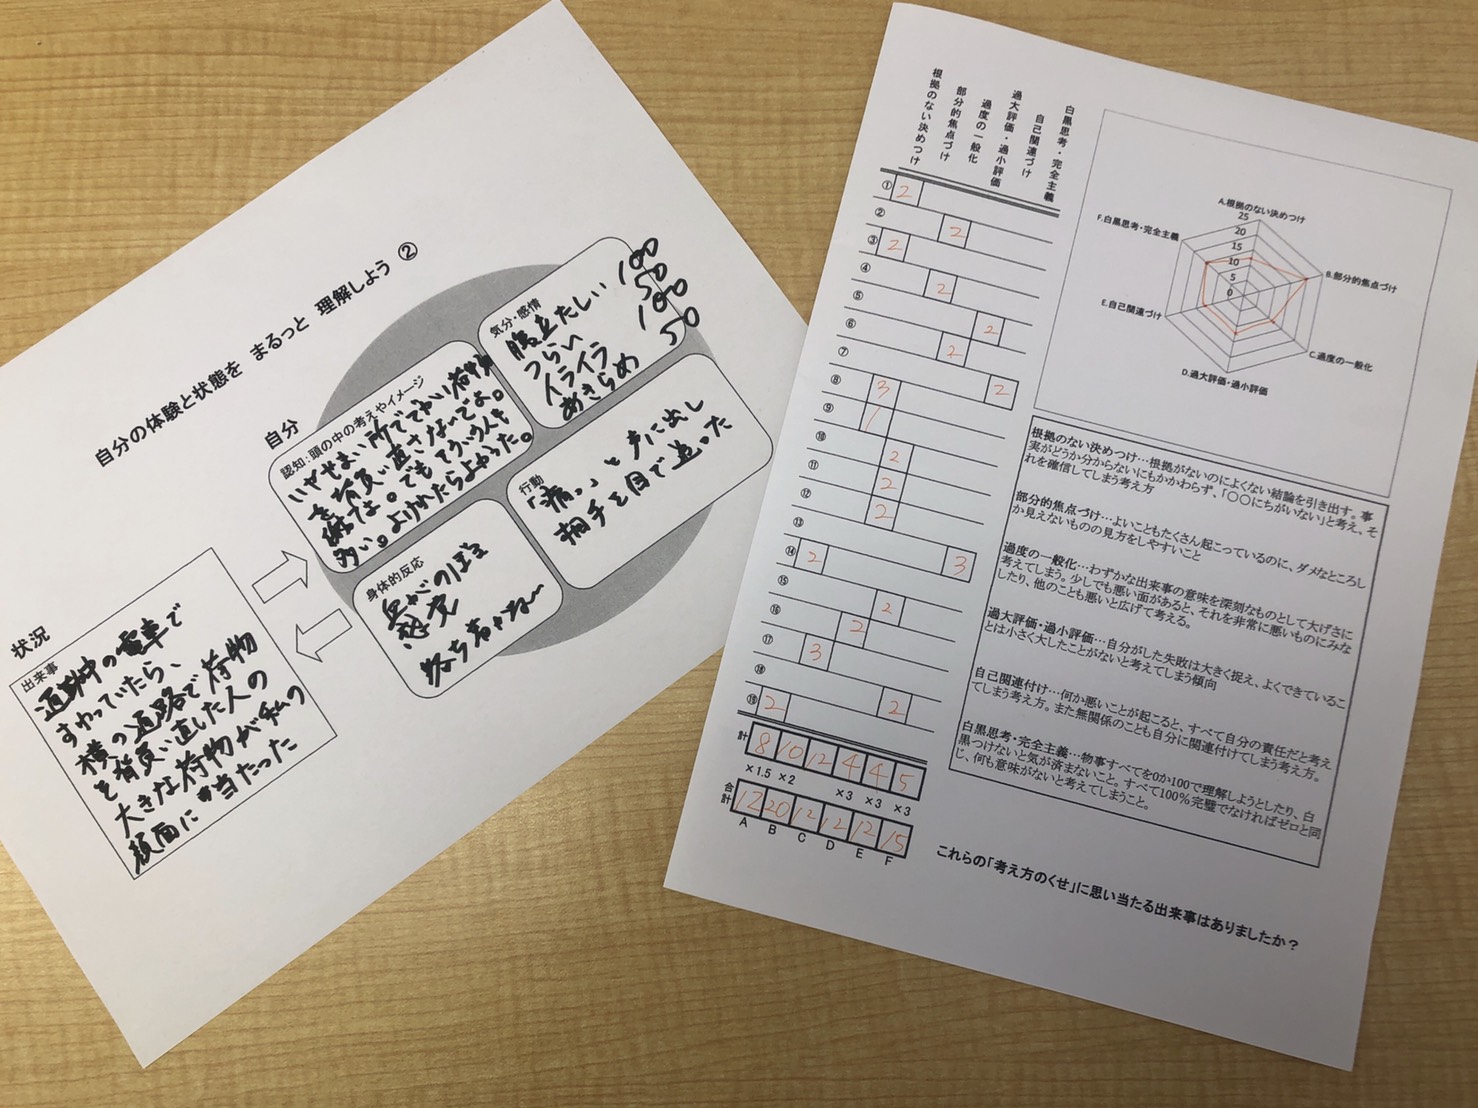 自分の体験と状態を まるっと 理解しよう ②
状況
出来事
通勤中の電車で
すわっていたら、
横の通路で荷物
を背負い直した人の
大きな荷物が私の
顔面に当たった
自分
認知:頭の中の考えやイメージ
を背負い直さないでよ。
嫌だな。でもてういう人も
多い。よけれたらよかった。
気分・感情
腹立たしい 100
つらい 50
イライラ 100
あきらめ 50
身体的反応
血がのぼる
行動
「痛っ」と声に出し
相手を目で追った
根拠のない決めつけ
部分的焦点づけ
過度の一般化
過大評価・過小評価
自己関連づけ
白黒思考・完全主義
① 2
② 2
③ 2
④ 2
⑤
⑥ 2
⑦ 2
⑧ 3 2
⑨ 1
⑩ 2
⑪ 2
⑫ 2
⑬
⑭ 2 3
⑮ 2
⑯ 2
⑰ 3
⑱
⑲ 2 2
計 8 10 12 4 4 5
×1.5 ×2 ×3 ×3 ×3
合計 12 20 12 12 12 15
A B C D E F
A.根拠のない決めつけ
25
20
15
10
5
0
F.白黒思考・完全主義
B.部分的焦点づけ
E.自己関連づけ
C.過度の一般化
D.過大評価・過小評価
根拠のない決めつけ…根拠がないのによくない結論を引き出す。事
実がどうか分からないにもかかわらず、「〇〇にちがいない」と考え、そ
れを確信してしまう考え方
部分的焦点づけ…よいこともたくさん起こっているのに、ダメなところし
か見えないものの見方をしやすいこと
過度の一般化…わずかな出来事の意味を深刻なものとして大げさに
考えてしまう。少しでも悪い面があると、それを非常に悪いものにみな
したり、他のことも悪いと広げて考える。
過大評価・過小評価…自分がした失敗は大きく捉え、よくできているこ
とは小さく大したことがないと考えてしまう傾向
自己関連付け…何か悪いことが起こると、すべて自分の責任だと考え
てしまう考え方。また無関係のことも自分に関連付けてしまう考え方。
白黒思考・完全主義…物事すべてを0か100で理解しようとしたり、白
黒つけないと気が済まないこと。すべて100%完璧でなければゼロと同
じ、何も意味がないと考えてしまうこと。
これらの「考え方のくせ」に思い当たる出来事はありましたか？